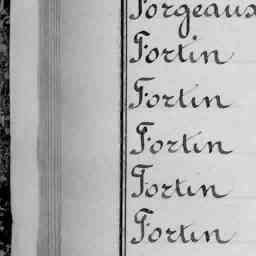 Forgeaux
Fortin
Fortin
Fortin
Fortin
Fortin